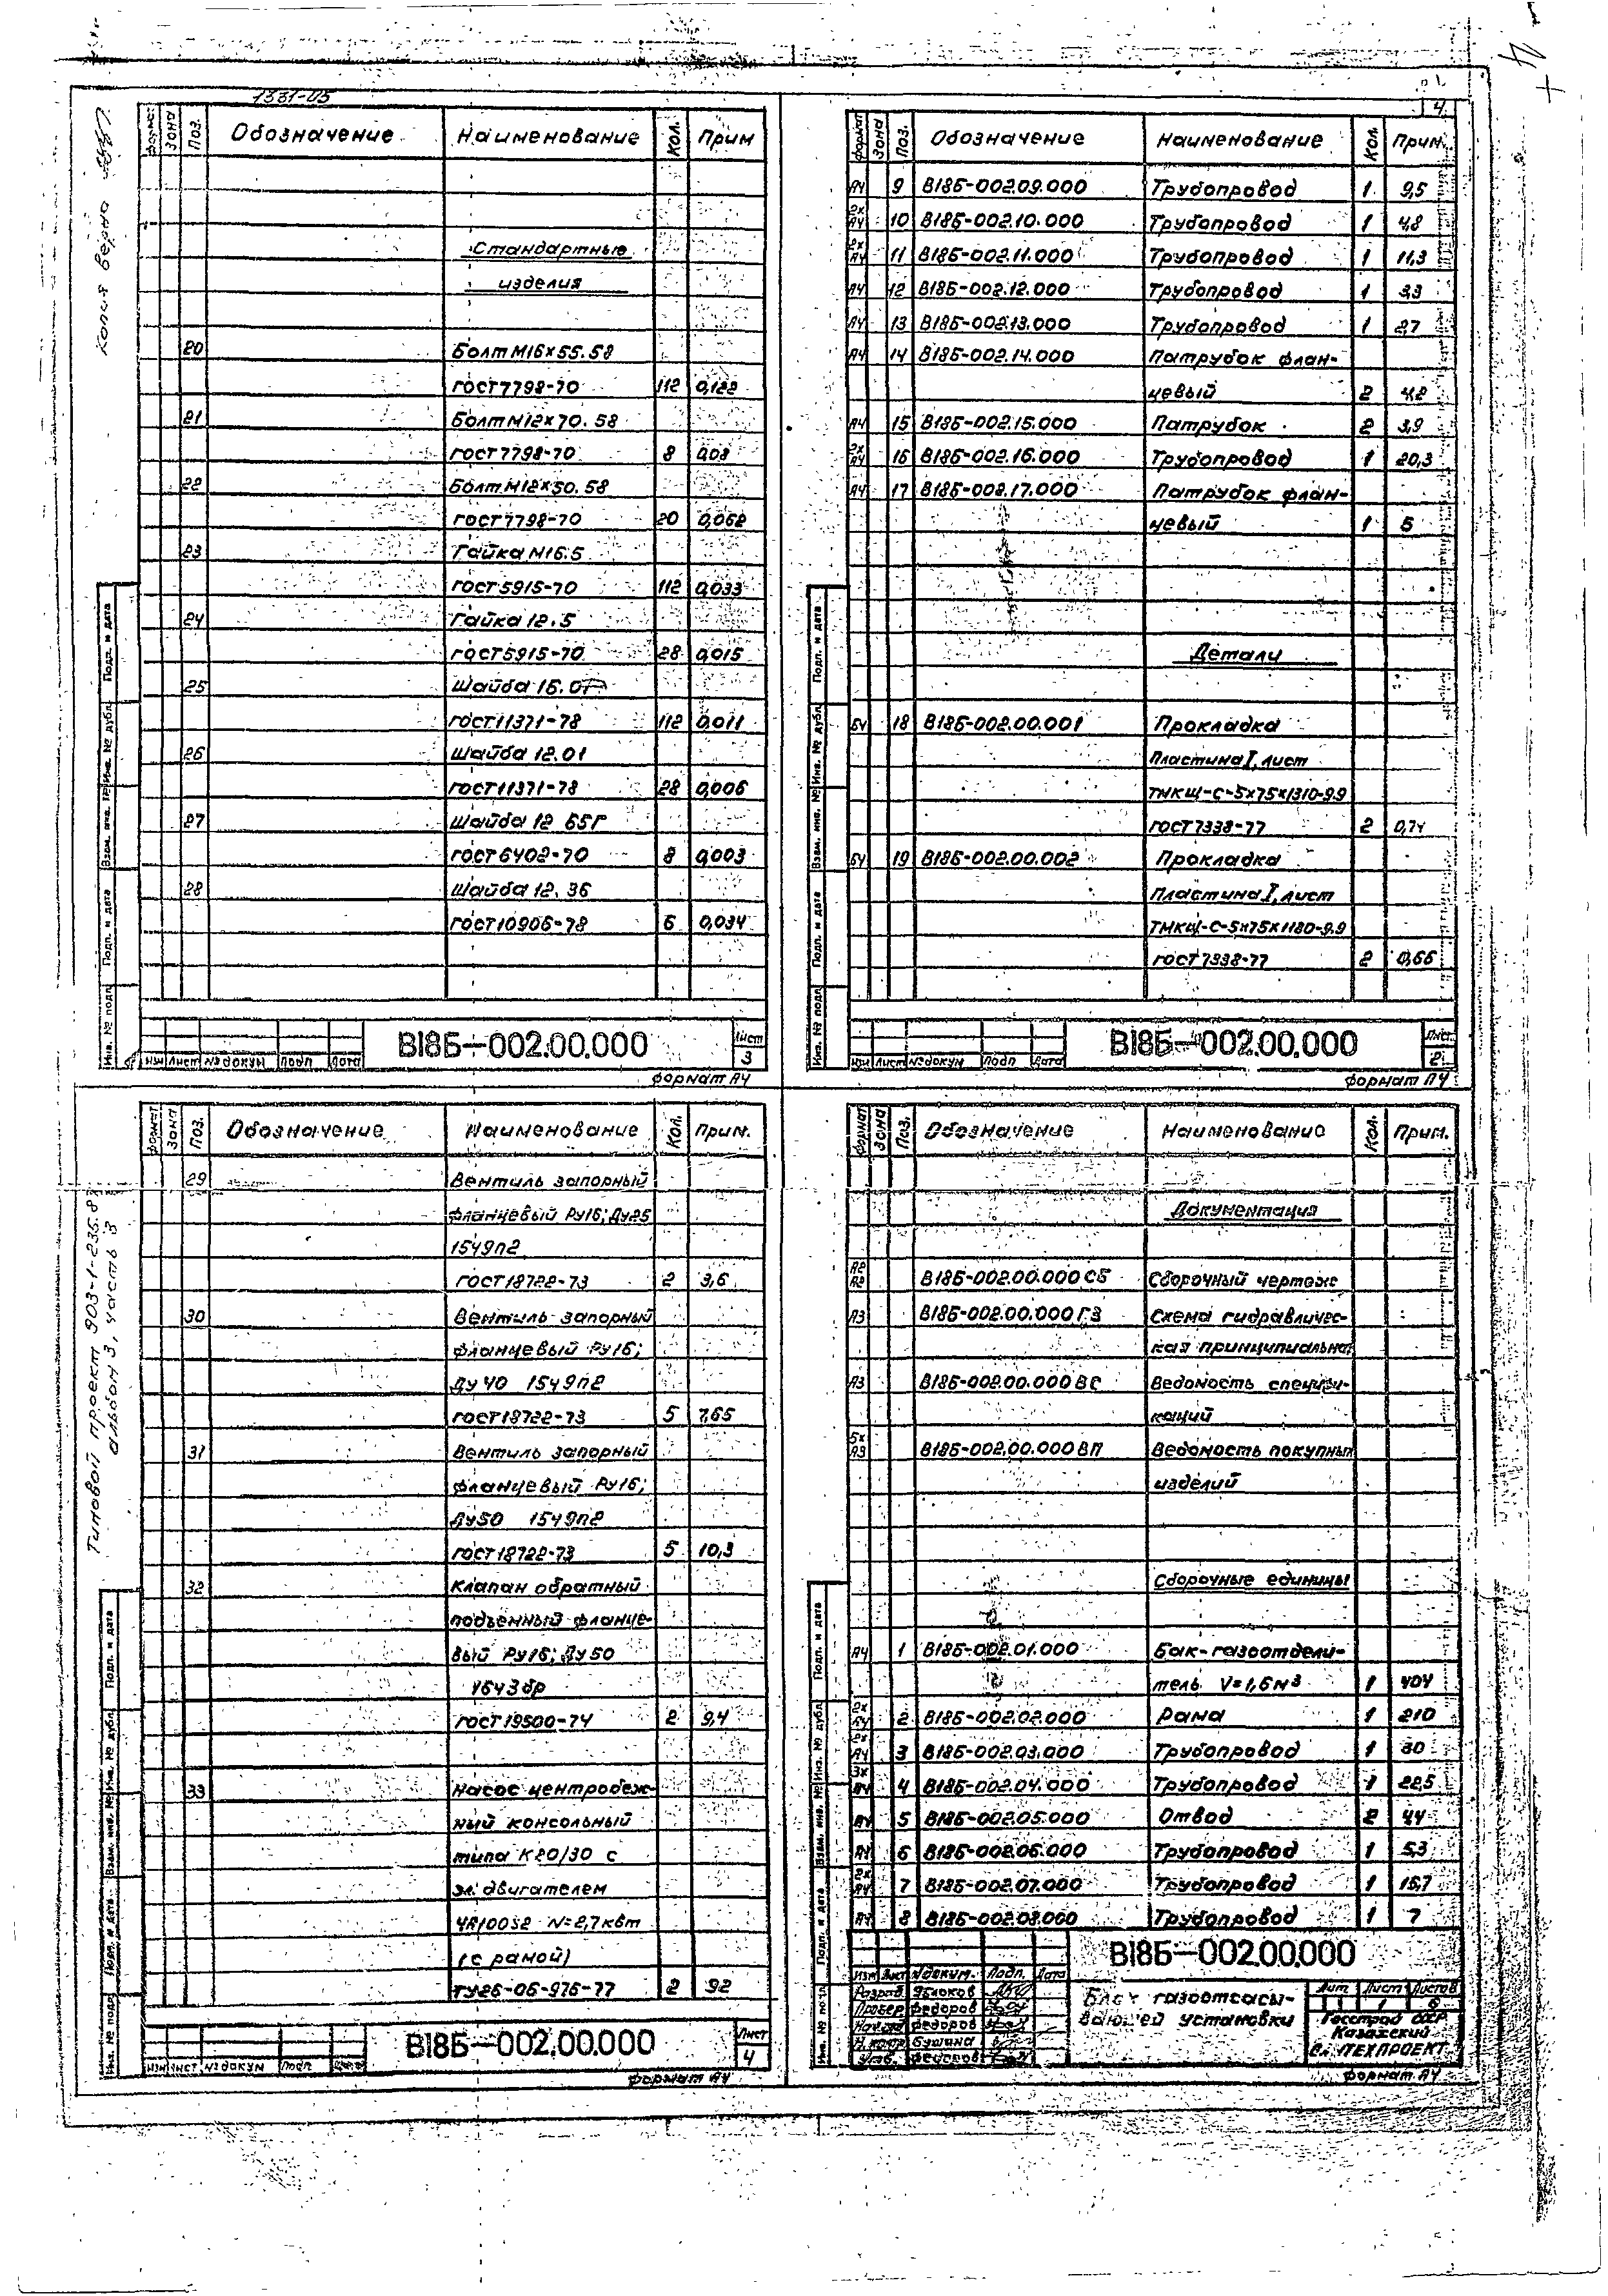 1331-05
4
Копия верна
Зона Поз. Обозначение Наименование Кол. Прим
Стандартные
изделия
20 Болт М16×55.58
ГОСТ 7798-70 112 0,122
21 Болт М12×70.58
ГОСТ 7798-70 8 0,08
22 Болт М12×50.58
ГОСТ 7798-70 20 0,062
23 Гайка М16.5
ГОСТ 5915-70 112 0,033
24 Гайка 12.5
ГОСТ 5915-70 28 0,015
25 Шайба 16.01
ГОСТ 11371-78 112 0,011
26 Шайба 12.01
ГОСТ 11371-78 28 0,006
27 Шайба 12 65Г
ГОСТ 6402-70 8 0,003
28 Шайба 12.36
ГОСТ 10906-78 6 0,034
Подп. и дата
Инв. № дубл.
Взам. инв. №
Подп. и дата
Инв. № подл.
Изм Лист № докум Подп Дата
В18Б-002.00.000
Лист
3
формат А4
Формат Зона Поз. Обозначение Наименование Кол. Прим.
А4 9 В18Б-002.09.000 Трубопровод 1 9,5
2х
А4 10 В18Б-002.10.000 Трубопровод 1 4,8
2х
А4 11 В18Б-002.11.000 Трубопровод 1 11,3
А4 12 В18Б-002.12.000 Трубопровод 1 3,3
А4 13 В18Б-002.13.000 Трубопровод 1 2,7
А4 14 В18Б-002.14.000 Патрубок флан-
цевый 2 4,2
А4 15 В18Б-002.15.000 Патрубок 2 3,9
2х
А4 16 В18Б-002.16.000 Трубопровод 1 20,3
А4 17 В18Б-002.17.000 Патрубок флан-
цевый 1 5
Детали
БЧ 18 В18Б-002.00.001 Прокладка
Пластина I, лист
ТМКЩ-С-5×75×1310-9.9
ГОСТ 7338-77 2 0,74
БЧ 19 В18Б-002.00.002 Прокладка
Пластина I, лист
ТМКЩ-С-5×75×1180-9.9
ГОСТ 7338-77 2 0,66
Подп. и дата
Инв. № дубл.
Взам. инв. №
Подп. и дата
Инв. № подл.
Изм Лист № докум Подп Дата
В18Б-002.00.000
Лист
2
формат А4
Типовой проект 903-1-235.8
альбом 3, часть 3
Формат Зона Поз. Обозначение Наименование Кол. Прим.
29 Вентиль запорный
фланцевый Ру16; Ду25
15ч9п2
ГОСТ 18722-73 2 3,6
30 Вентиль запорный
фланцевый Ру16;
Ду40 15ч9п2
ГОСТ 18722-73 5 7,65
31 Вентиль запорный
фланцевый Ру16;
Ду50 15ч9п2
ГОСТ 18722-73 5 10,3
32 Клапан обратный
подъемный фланце-
вый Ру16; Ду50
16ч3бр
ГОСТ 19500-74 2 9,4
33 Насос центробеж-
ный консольный
типа К20/30 с
эл. двигателем
4А100S2 N=2,7 квт
(с рамой)
ТУ26-06-976-77 2 92
Подп. и дата
Инв. № дубл.
Взам. инв. №
Подп. и дата
Инв. № подл.
Изм Лист № докум Подп Дата
В18Б-002.00.000
Лист
4
формат А4
Формат Зона Поз. Обозначение Наименование Кол. Прим.
Документация
А2
А2 В18Б-002.00.000 СБ Сборочный чертеж
А3 В18Б-002.00.000 Г3 Схема гидравличес-
кая принципиальная
А3 В18Б-002.00.000 ВС Ведомость специфи-
каций
5х
А3 В18Б-002.00.000 ВП Ведомость покупных
изделий
Сборочные единицы
А4 1 В18Б-002.01.000 Бак-газоотдели-
тель V=1,6 м³ 1 404
2х
А4 2 В18Б-002.02.000 Рама 1 210
2х
А4 3 В18Б-002.03.000 Трубопровод 1 30
3х
А4 4 В18Б-002.04.000 Трубопровод 1 22,5
А4 5 В18Б-002.05.000 Отвод 2 4,4
А4 6 В18Б-002.06.000 Трубопровод 1 5,3
2х
А4 7 В18Б-002.07.000 Трубопровод 1 15,7
А4 8 В18Б-002.08.000 Трубопровод 1 7
Подп. и дата
Инв. № дубл.
Взам. инв. №
Подп. и дата
Инв. № подл.
В18Б-002.00.000
Изм Лист № докум. Подп. Дата
Разраб. Яблоков
Провер Федоров
Федоров
Н. контр Бушина
Утв. Федоров
Блок газоотсасы-
вающей установки
Лит Лист Листов
1 6
Госстрой СССР
Казахский
ВОДОКАНАЛ
формат А4